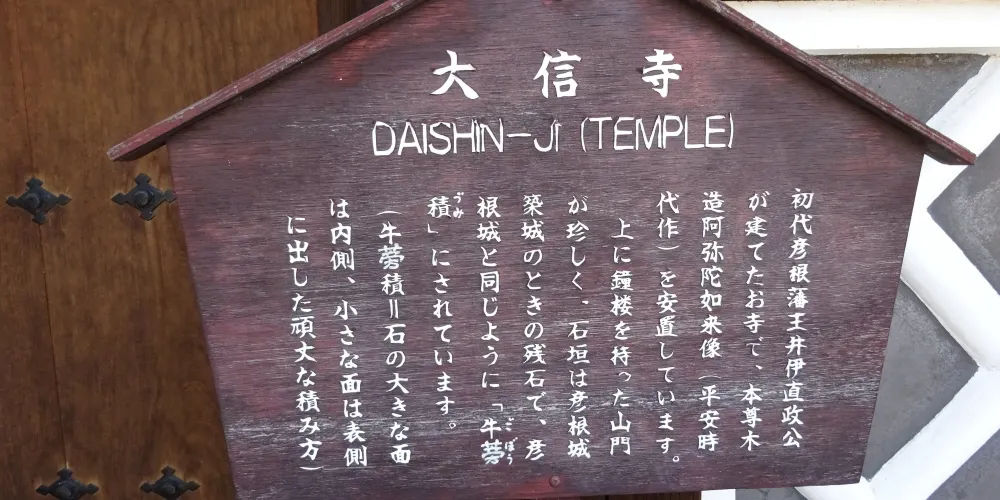 大信寺
DAISHIN-JI (TEMPLE)
初代彦根藩主井伊直政公
が建てたお寺で、本尊木
造阿弥陀如来像(平安時
代作)を安置しています。
上に鐘楼を持った山門
が珍しく、石垣は彦根城
築城のときの残石で、彦
根城と同じように「牛蒡
ごぼう
積」にされています。
づみ
(牛蒡積=石の大きな面
は内側、小さな面は表側
に出した頑丈な積み方)